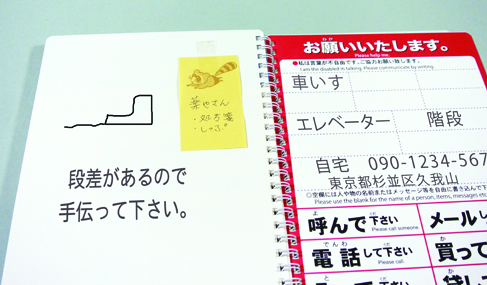 葉也さん
・処方箋
・しっぷ
段差があるので
手伝って下さい。
お願いいたします。
Please help me.
●私は言葉が不自由です。ご協力お願い致します。
I am the disabled in talking. Please communicate by writing.
車いす
エレベーター 階段
自宅 090-1234-567
東京都杉並区久我山
○空欄には人や物の名前またはメッセージ等を自由に書き込んで下
Please use the blank for the name of a person, items, messages etc.
呼んで下さい メール
Please call someone.
電話して下さい 買って
Please call.
貸し